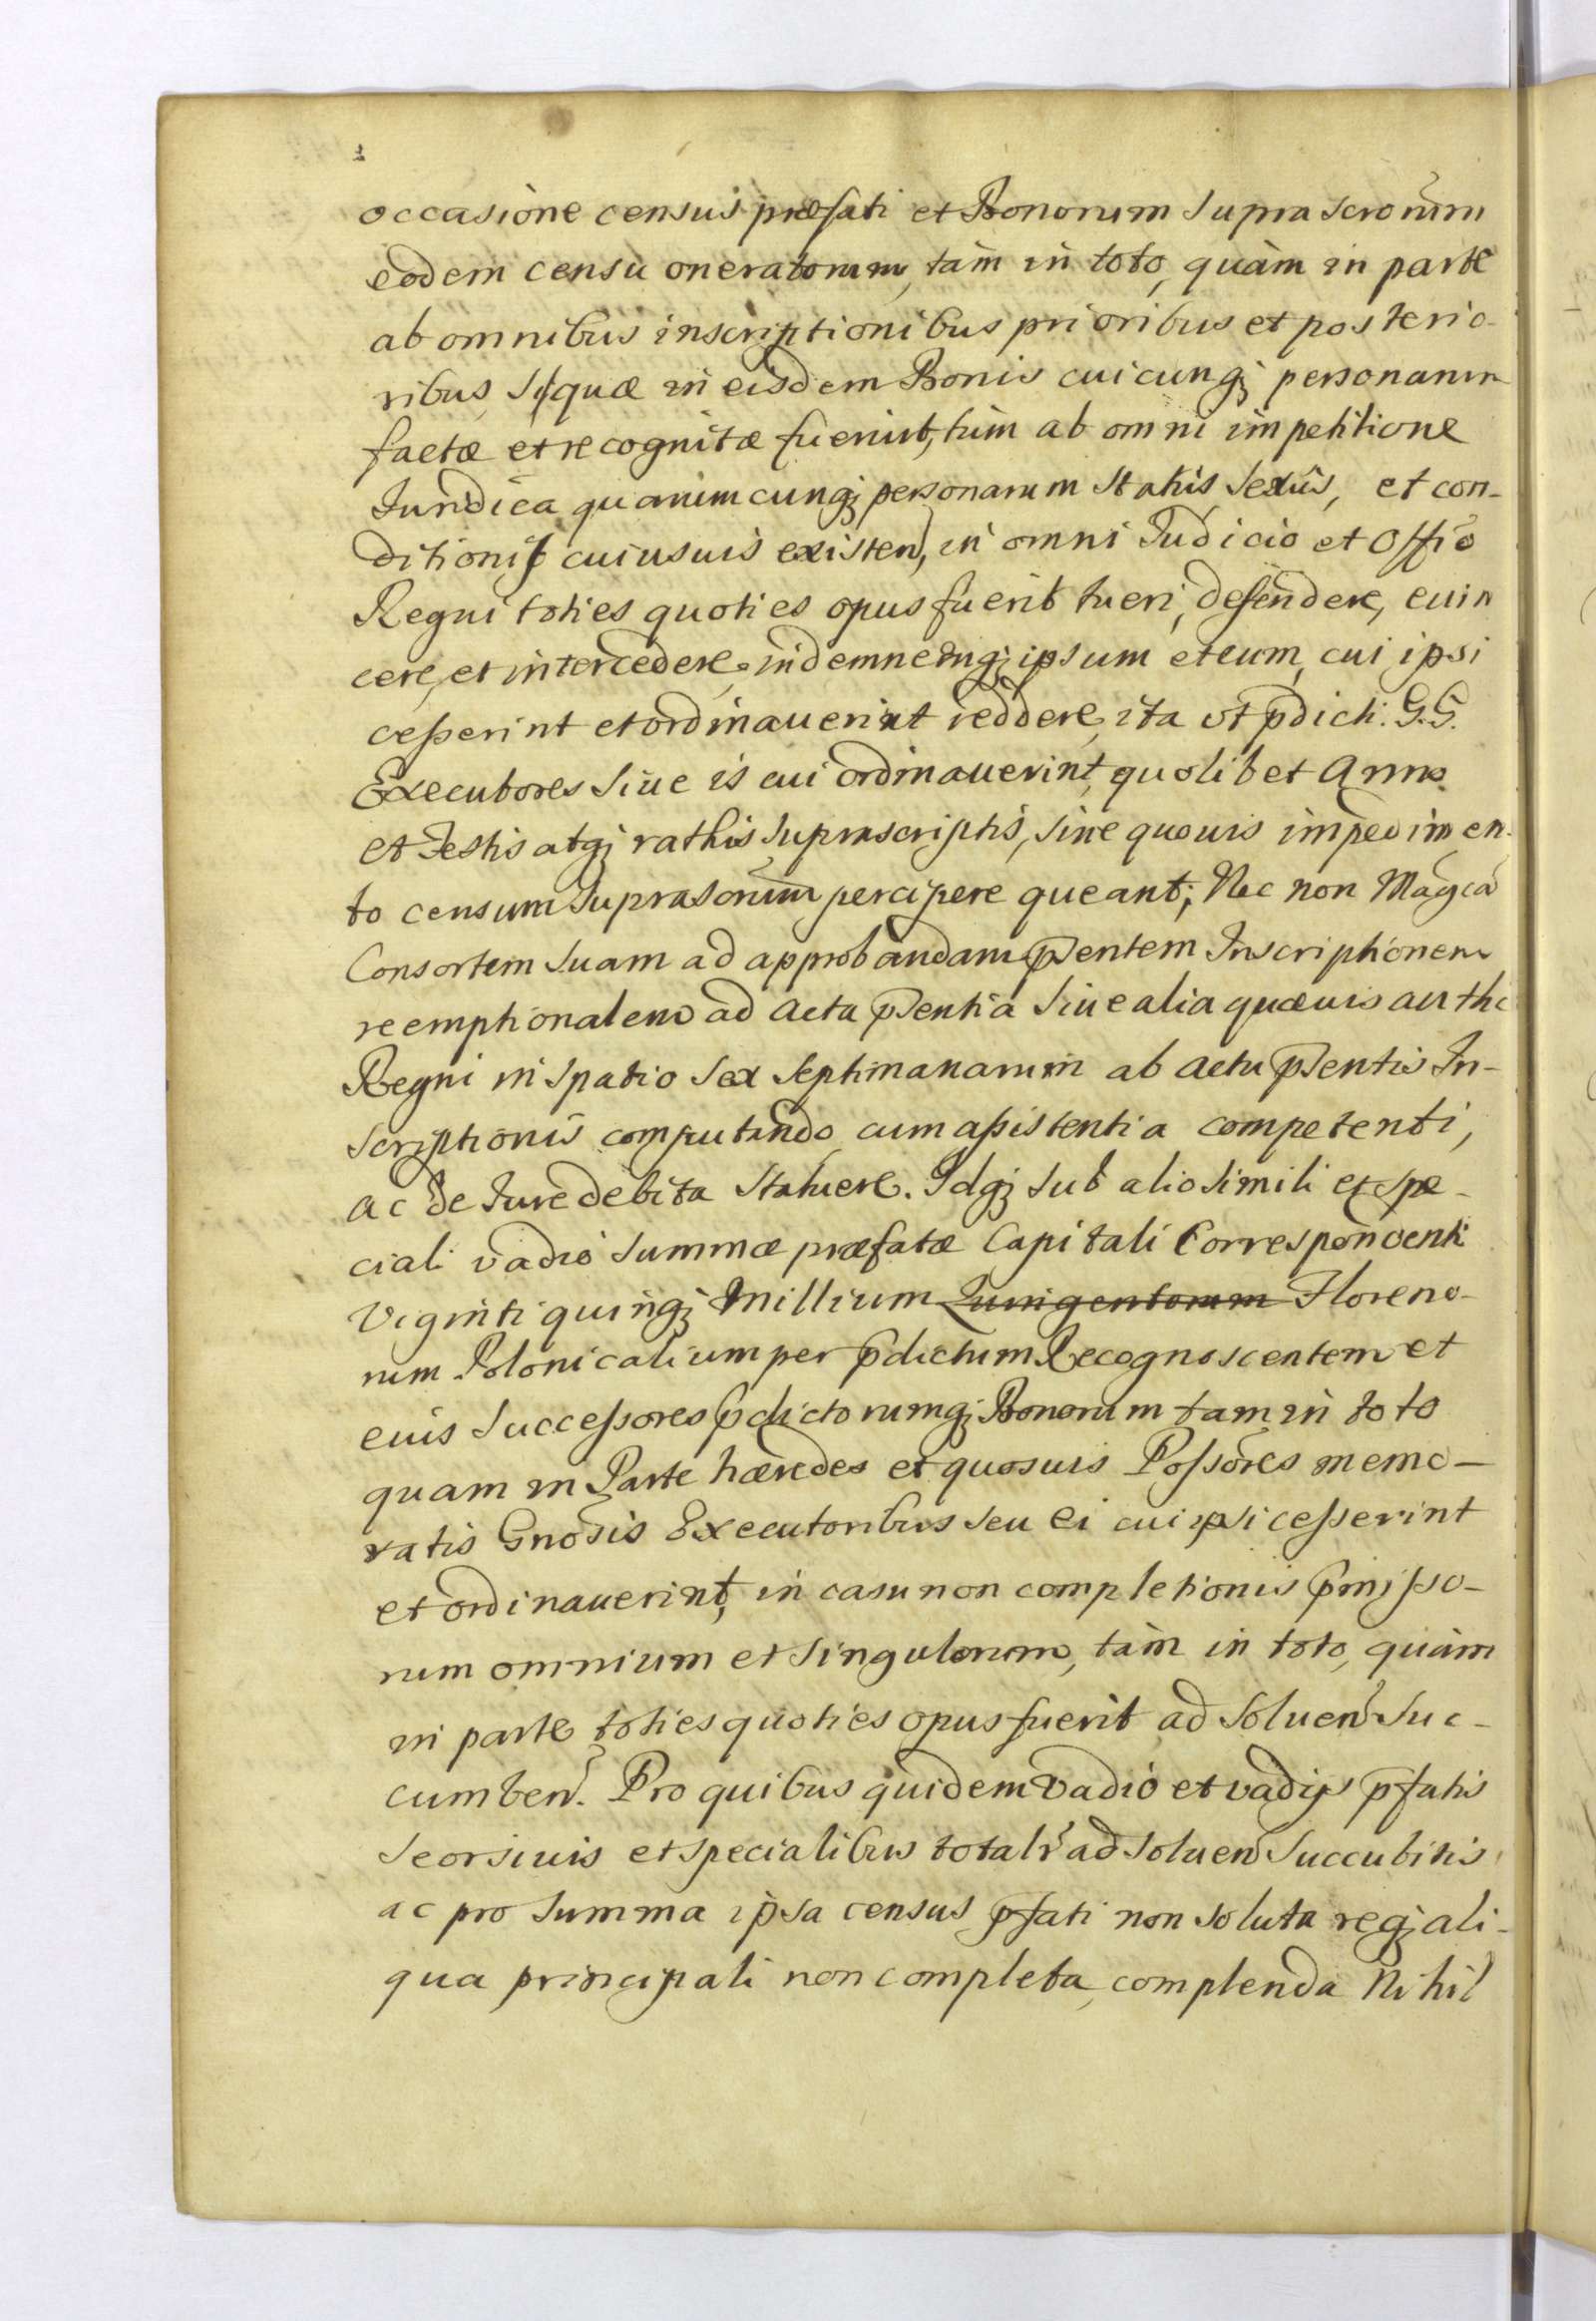 occasione census præfati et Bonorum suprascrorum
eodem censu oneratorum, tàm in toto, quàm in parte
ab omnibus inscriptionibus prioribus et posterio-
ribus, siquæ in eisdem Bonis cuicunq; personarum
factæ et recognitæ fuerint, tùm ab omni impetitione
Iuridica quarumcunq; personarum status, sexûs, et con-
ditionis cuiusuis existen, in omni Iudicio et Offio
Regni toties quoties opus fuerit tueri, defendere, euin
cere, et intercedere, indemnemq; ipsum et eum, cui ipsi
cesserint et ordinauerint reddere, ita vt pdicti. G.G.
Executores siue is cui ordinauerint, quolibet Anno
et Festis atq; rathis suprascriptis, sine quouis impedimen-
to censum suprasorum percipere queant; Nec non Magcã
Consortem suam ad approbandam pntem Inscriptionem
reemptionalem ad Acta pntia siue alia quæuis auth
Regni in spatio sex septimanarum ab actu pntis In-
scriptionis computando, cum assistentia competenti,
ac de Iure debita statuere. Idq; sub alio simili et spe-
ciali vadio summæ præfatæ Capitali Correspondenti
Viginti quinq; Millium Quingentorum Floreno-
rum Polonicalium per pdictum Recognoscentem et
eius successores pdictorumq; Bonorum tam in toto
quam in Parte hæredes et quosuis Possores memo-
ratis Gnosis Executoribus seu ei cui ipsi cesserint
et ordinauerint, in casu non completionis pmisso-
rum omnium et singulorum, tàm in toto, quàm
in parte, toties quoties opus fuerit ad soluen suc-
cumben. Pro quibus quidem vadio et vadijs pfatis
seorsiuis et specialibus totalr ad soluen succubitis
ac pro summa ipsa census pfati non soluta req; ali-
qua principali non completa, complenda Nihil